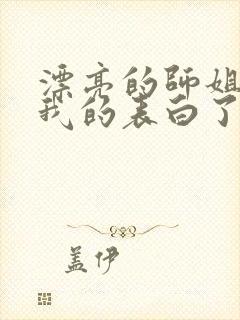 漂亮的师姐
我的表白了
盖伊